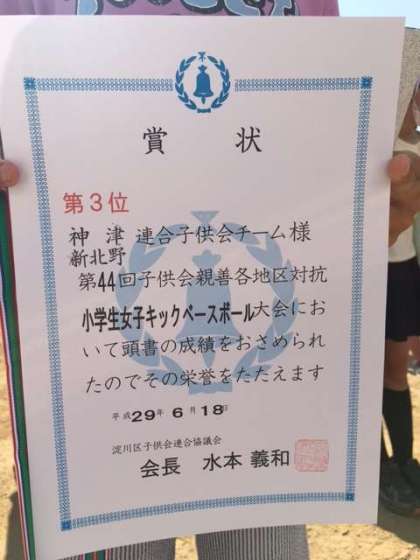 賞状
第3位
神津 連合子供会チーム様
新北野
第44回子供会親善各地区対抗
小学生女子キックベースボール大会にお
いて頭書の成績をおさめられ
たのでその栄誉をたたえます
平成29年6月18日
淀川区子供会連合協議会
会長 水本義和